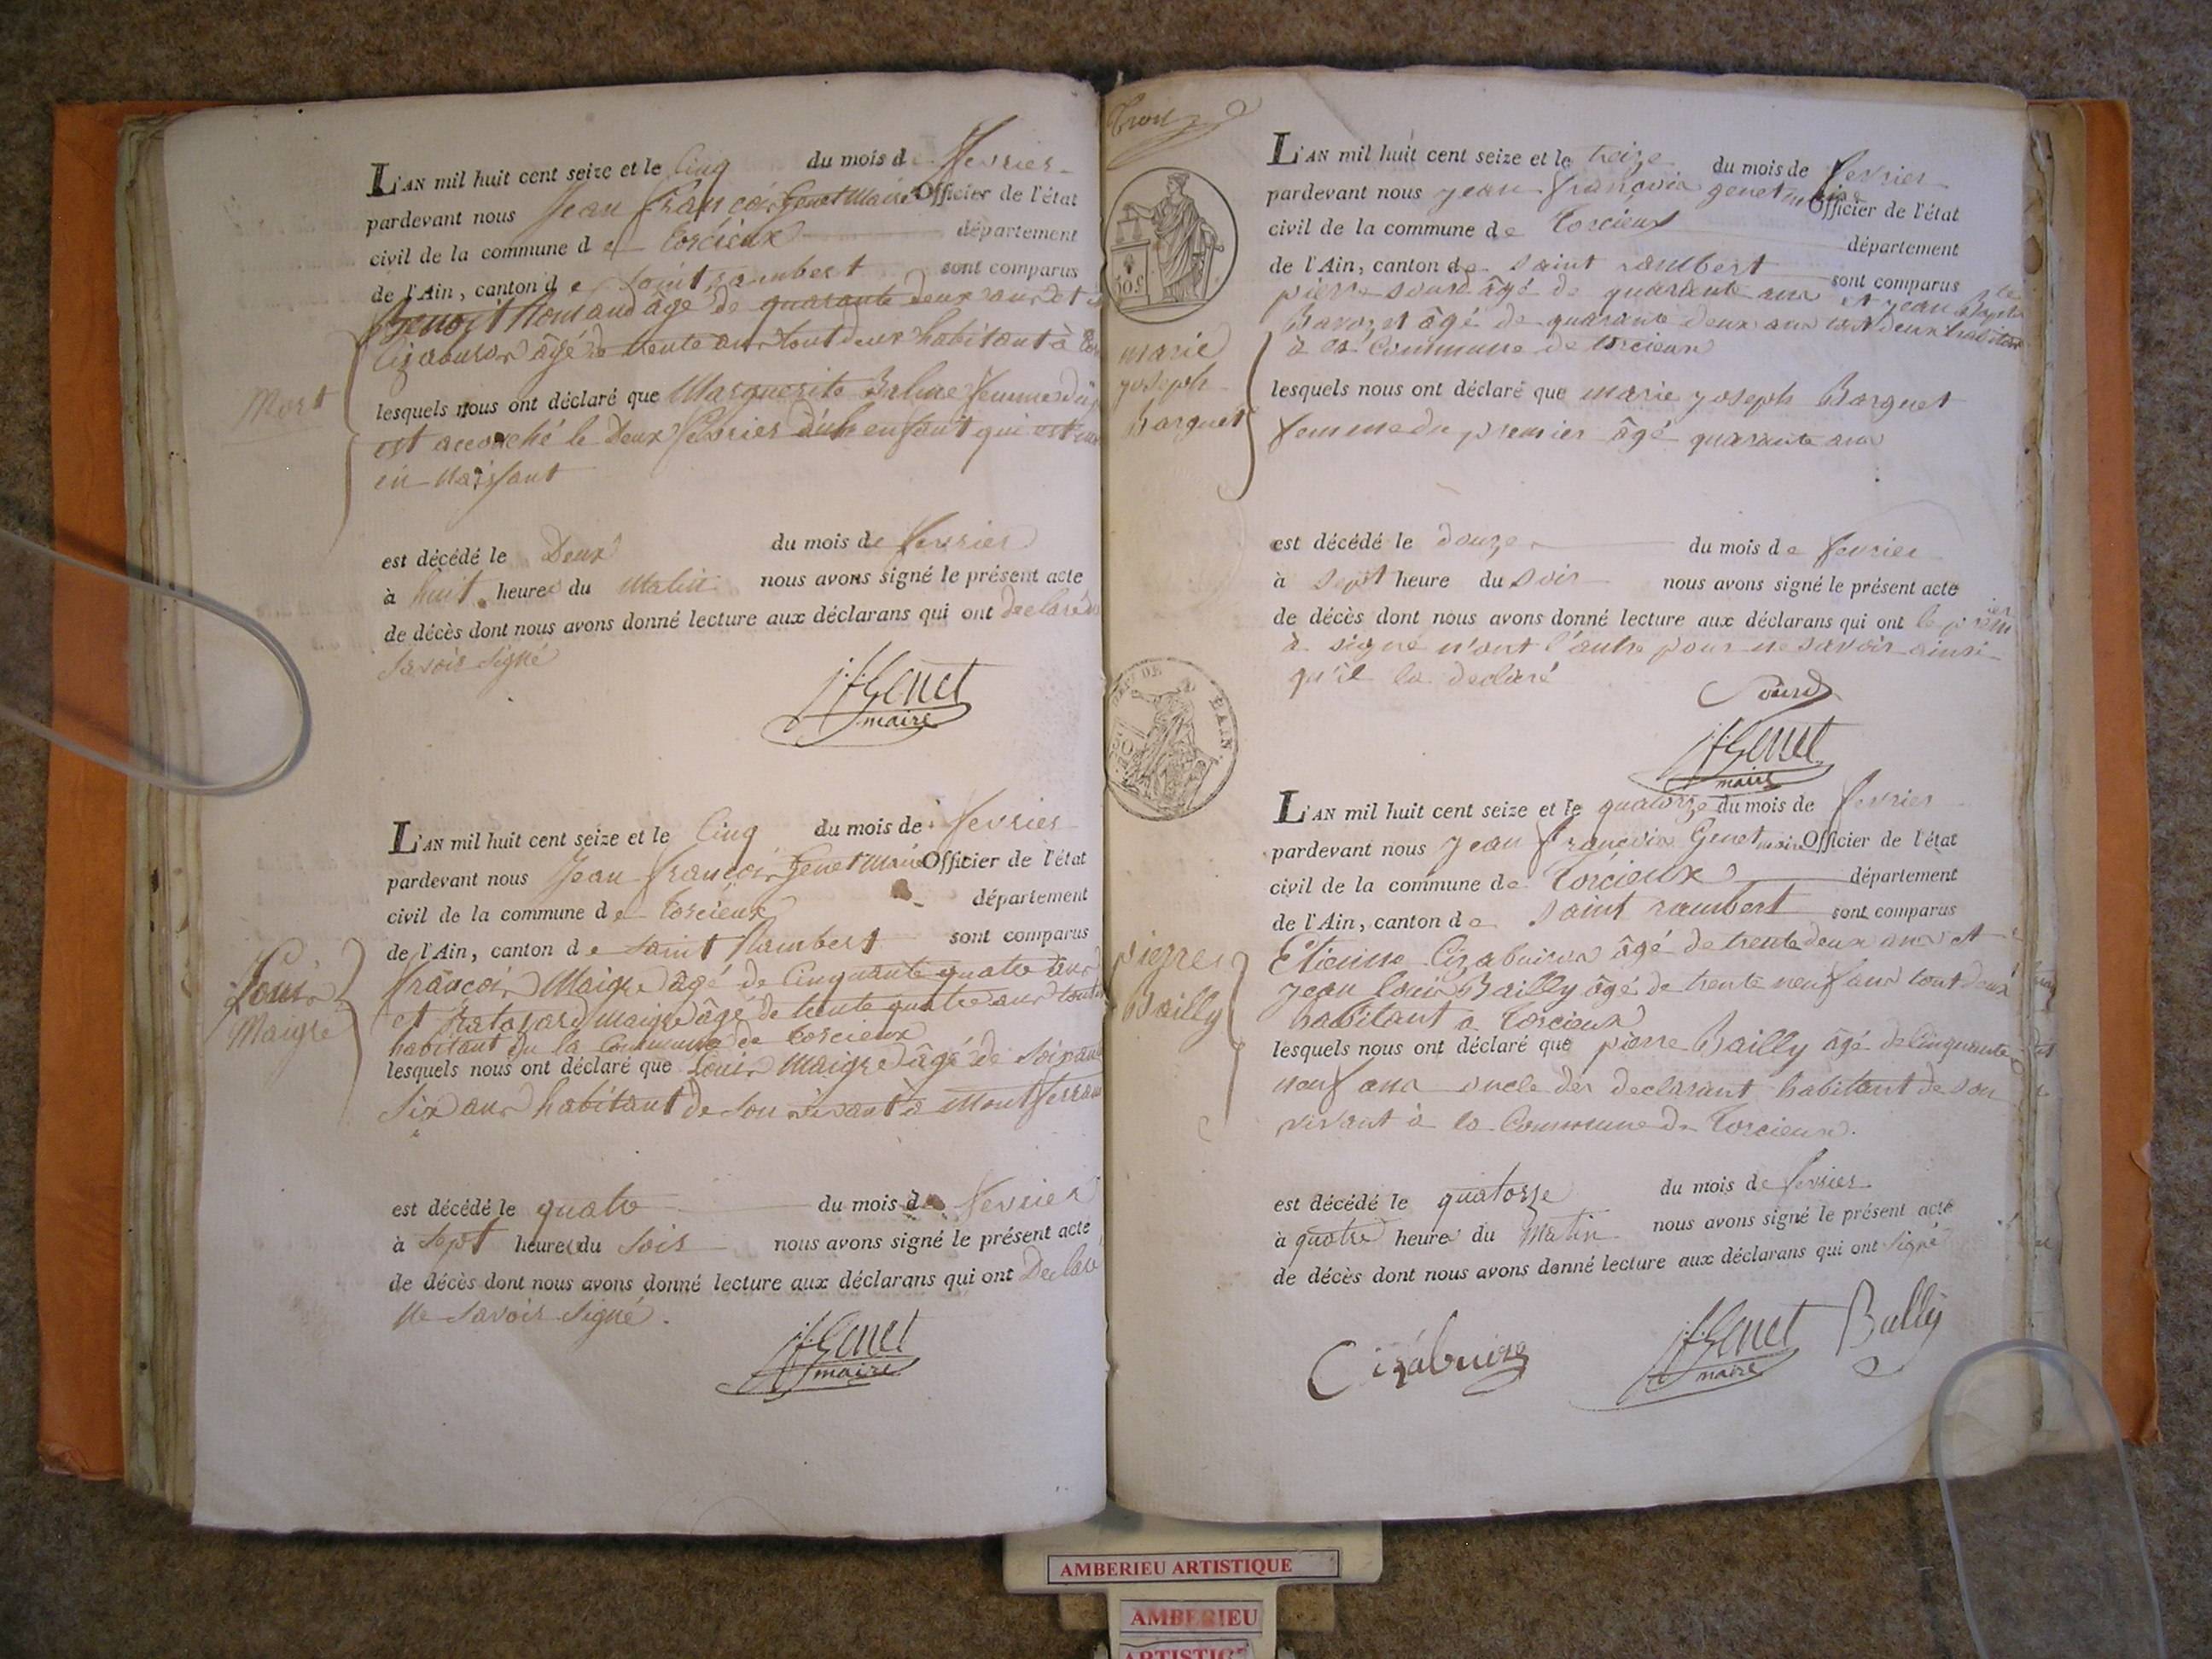 Mort
L'AN mil huit cent seize et le Cinq du mois de fevrier
pardevant nous Jean françois Genet Maire Officier de l'état
civil de la commune de torcieux département
de l'Ain, canton de saint rambert sont comparus
Benoit âgé de quarante deux ans et
âgé de trente ans tout deux habitant à
lesquels nous ont déclaré que Marguerite Balme femme
est accouché le Deux fevrier d'un enfant qui est
en naissant
est décédé le Deux du mois de fevrier
à huit heures du Matin nous avons signé le présent acte
de décès dont nous avons donné lecture aux déclarans qui ont declaré
savoir signé
jf Genet
maire
Louis
Maigre
L'AN mil huit cent seize et le Cinq du mois de fevrier
pardevant nous Jean françois Genet Maire Officier de l'état
civil de la commune de torcieux département
de l'Ain, canton de saint Rambert sont comparus
françois Maigre âgé de Cinquante quatre ans
et maigre âgé de trente quatre ans
habitant en la Commune de torcieux
lesquels nous ont déclaré que Louis Maigre âgé de
six ans habitant de son vivant à
est décédé le quatre du mois de fevrier
à sept heures du soir nous avons signé le présent acte
de décès dont nous avons donné lecture aux déclarans qui ont Declaré
ne savoir signé.
jf Genet
maire
marie
joseph
barquet
L'AN mil huit cent seize et le treize du mois de fevrier
pardevant nous jean françois genet maire Officier de l'état
civil de la commune de torcieux département
de l'Ain, canton de saint rambert sont comparus
pierre sourd âgé de quarante ans et jean
âgé de quarante deux ans tout deux
à la Commune de torcieux
lesquels nous ont déclaré que marie joseph Barquet
femme du premier âgé quarante ans
est décédé le douze du mois de fevrier
à sept heure du soir nous avons signé le présent acte
de décès dont nous avons donné lecture aux déclarans qui ont le premier
à signé n'ont l'autre pour ne savoir ainsi
qu'il la declaré
Sourd
jf Genet
maire
pierre
Bailly
L'AN mil huit cent seize et le quatorze du mois de fevrier
pardevant nous jean françois Genet maire Officier de l'état
civil de la commune de torcieux département
de l'Ain, canton de saint rambert sont comparus
Etienne Cizabuiron âgé de trente deux ans et
jean louis Bailly âgé de trente neuf ans tout deux
habitant à torcieux
lesquels nous ont déclaré que pierre Bailly âgé de Cinquante
neuf ans oncle des declarant habitant de son
vivant à la Commune de torcieux.
est décédé le quatorze du mois de fevrier
à quatre heures du Matin nous avons signé le présent acte
de décès dont nous avons donné lecture aux déclarans qui ont signé
jf Genet
maire
Bally
AMBERIEU ARTISTIQUE
AMBERIEU